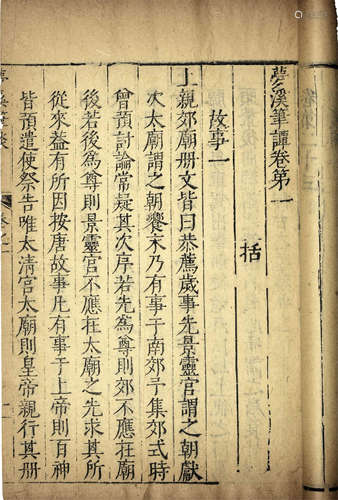 夢溪筆譚卷第一
括
故事一
上親郊廟册文皆曰恭薦歲事先景靈宫謂之朝獻
次太廟謂之朝饗末乃有事于南郊予集郊式時
曾預討論常疑其次序若先爲尊則郊不應在廟
後若後爲尊則景靈宫不應在太廟之先求其所
從來蓋有所因按唐故事凡有事于上帝則百神
皆預遣使祭告唯太清宫太廟則皇帝親行其册